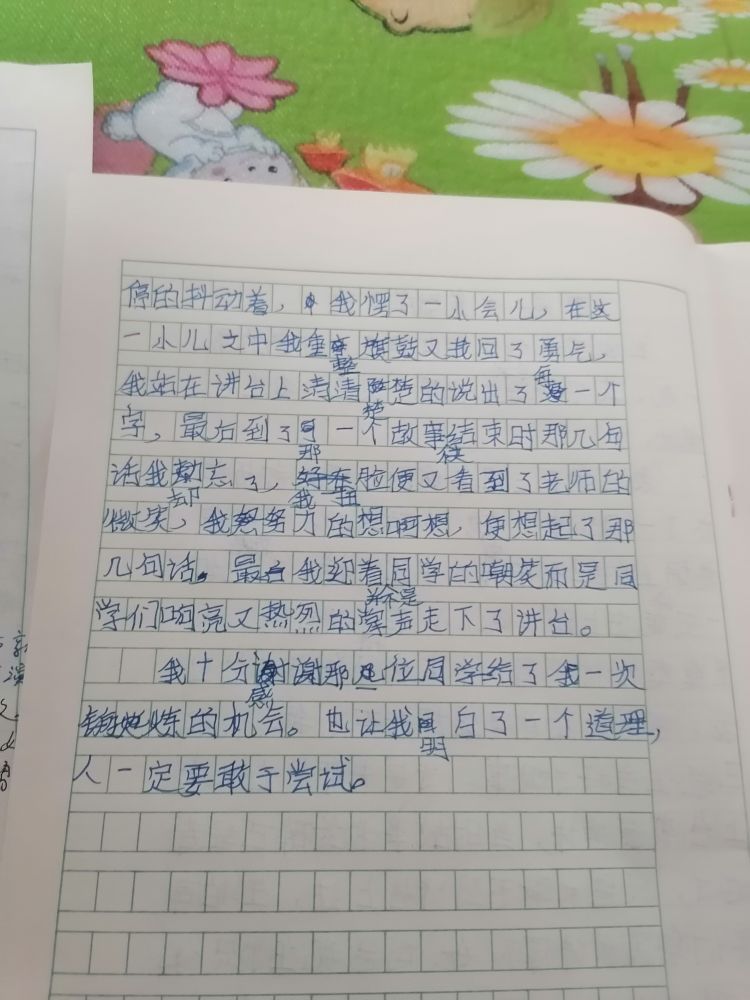 停的抖动着，我愣了一小会儿，在这
一小儿之中我重整旗鼓又找回了勇气，
我站在讲台上清清楚楚的说出了每一个
字，最后到了那一个故事结束时那几句
话我却忘了，我扭脸便又看到了老师的
微笑，我努力的想啊想，便想起了那
几句话。最后我迎着并不是同学的嘲笑而是同
学们响亮又热烈的掌声走下了讲台。
我十分感谢那位同学给了我一次
锻炼的机会。也让我明白了一个道理，
人一定要敢于尝试。